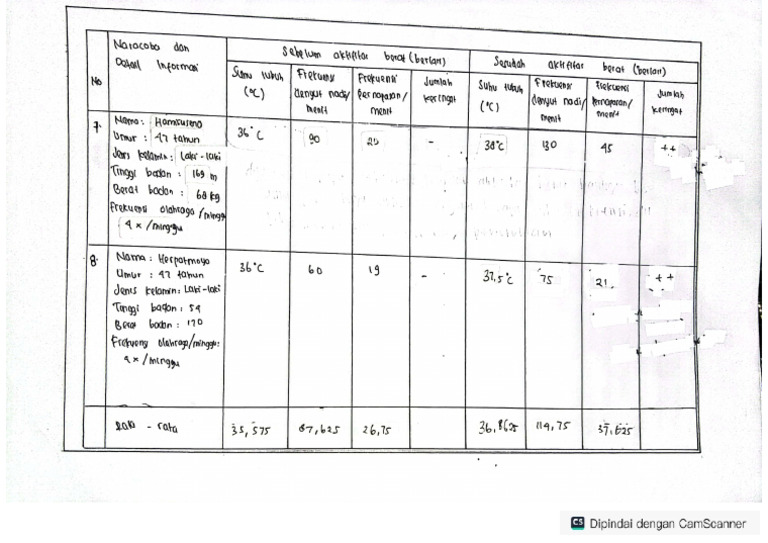 No
Naracoba dan
Detail Informasi
Sebelum aktifitas berat (berlari)
Sesudah aktifitas berat (berlari)
Suhu tubuh
(°C)
Frekuensi
denyut nadi/
menit
Frekuensi
Pernapasan/
menit
Jumlah
keringat
Suhu tubuh
(°C)
Frekuensi
denyut nadi/
menit
Frekuensi
Pernapasan/
menit
Jumlah
keringat
7.
Nama :
Umur : 47 tahun
Jenis kelamin : Laki-laki
Tinggi badan : 169 m
Berat badan : 68 kg
Frekuensi olahraga/minggu
4 x /minggu
36°C
90
20
-
38°C
130
45
++
8.
Nama :
Umur : 47 tahun
Jenis kelamin : Laki-laki
Tinggi badan : 54
Berat badan : 170
Frekuensi olahraga/minggu:
4 x /minggu
36°C
60
19
-
37,5°C
75
21
++
Rata - rata
35,575
87,625
26,75
36,8625
114,75
37,625
CS Dipindai dengan CamScanner